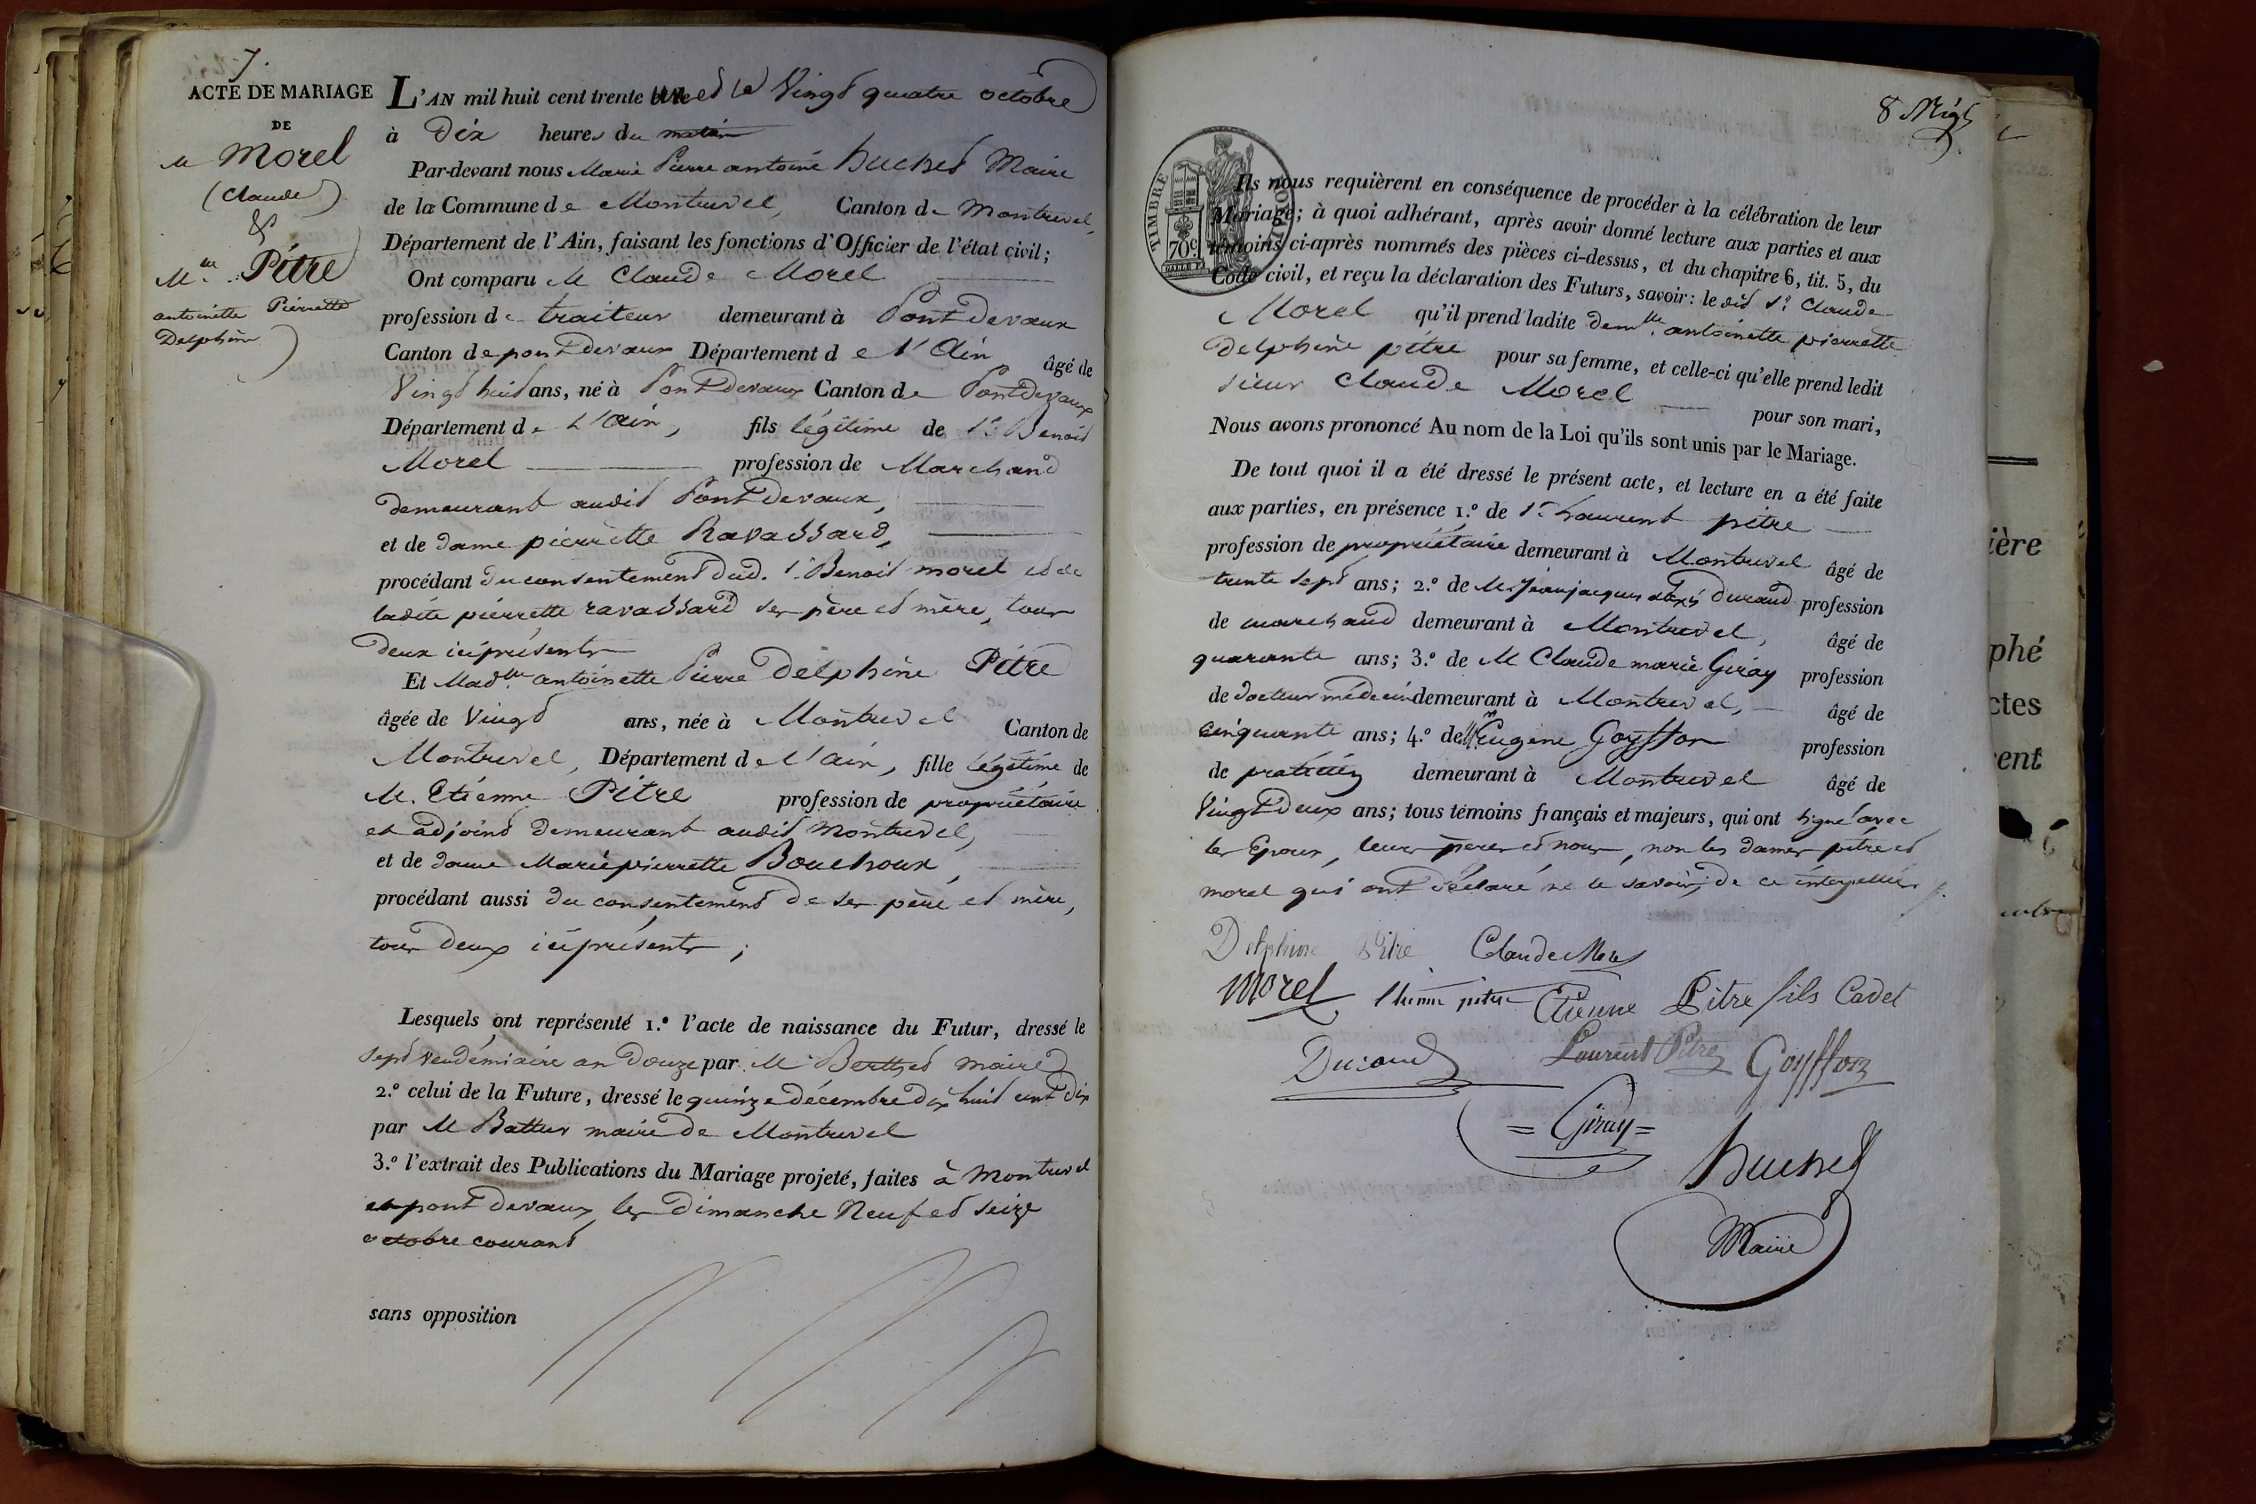 7.
ACTE DE MARIAGE
DE
M Morel
(Claude)
&
M.lle Pitre
antoinette Pierrette
Delphine)
L'AN mil huit cent trente une et le Vingt quatre octobre
à Dix heures du matin
Par-devant nous Marie Pierre antoine huchet Maire
de la Commune de Montrevel, Canton de Montrevel,
Département de l'Ain, faisant les fonctions d'Officier de l'état civil;
Ont comparu M Claude Morel
profession de traiteur demeurant à Pont Devaux
Canton de pont devaux Département de l'Ain âgé de
Vingt huit ans, né à Pont devaux Canton de Pont devaux
Département de L'ain, fils légitime de Sr. Benoit
Morel profession de Marchand
demeurant audit Pont Devaux,
et de dame pierrette Ravassard,
procédant du consentement dud. Sr. Benoit morel et de
ladite pierrette ravassard ses père et mère, tous
deux ici présents
Et Mad.lle antoinette Pierre Delphine Pitre
âgée de Vingt ans, née à Montrevel Canton de
Montrevel, Département de l'ain, fille légitime de
M. Etienne Pitre profession de propriétaire
et adjoint demeurant audit Montrevel,
et de dame Marie pierrette Bouchoux,
procédant aussi du consentement de ses père et mère,
tous deux ici présents;
Lesquels ont représenté 1.° l'acte de naissance du Futur, dressé le
sept Vendémiaire an douze par M Berthet maire
2.° celui de la Future, dressé le quinze décembre dix huit cent dix
par M Battur maire de Montrevel
3.° l'extrait des Publications du Mariage projeté, faites à Montrevel
et pont devaux les dimanche Neuf et seize
octobre courant
sans opposition
8
TIMBRE ROYAL
70c.
Ils nous requièrent en conséquence de procéder à la célébration de leur
Mariage; à quoi adhérant, après avoir donné lecture aux parties et aux
témoins ci-après nommés des pièces ci-dessus, et du chapitre 6, tit. 5, du
Code civil, et reçu la déclaration des Futurs, savoir: le dit Sr. Claude
Morel qu'il prend ladite dem.lle antoinette pierrette
delphine pitre pour sa femme, et celle-ci qu'elle prend ledit
sieur Claude Morel pour son mari,
Nous avons prononcé Au nom de la Loi qu'ils sont unis par le Mariage.
De tout quoi il a été dressé le présent acte, et lecture en a été faite
aux parties, en présence 1.° de Sr. Laurent pitre
profession de propriétaire demeurant à Montrevel âgé de
trente sept ans; 2.° de M. Jean jacques alexis Durand profession
de marchand demeurant à Montrevel, âgé de
quarante ans; 3.° de M Claude marie Giray profession
de docteur médecin demeurant à Montrevel, âgé de
cinquante ans; 4.° de M Eugène Goyffon profession
de praticien demeurant à Montrevel âgé de
Vingt Deux ans; tous témoins français et majeurs, qui ont signé avec
les Epoux, leurs pères et nous, non les dames pitre et
morel qui ont déclaré ne le savoir, de ce interpellées
Delphine Pitre Claude Morel
Morel Etienne pitre Etienne Pitre fils Cadet
Durand Laurent Pitre Goyffon
= Giray =
huchet
Maire
ière
phé
ctes
cent